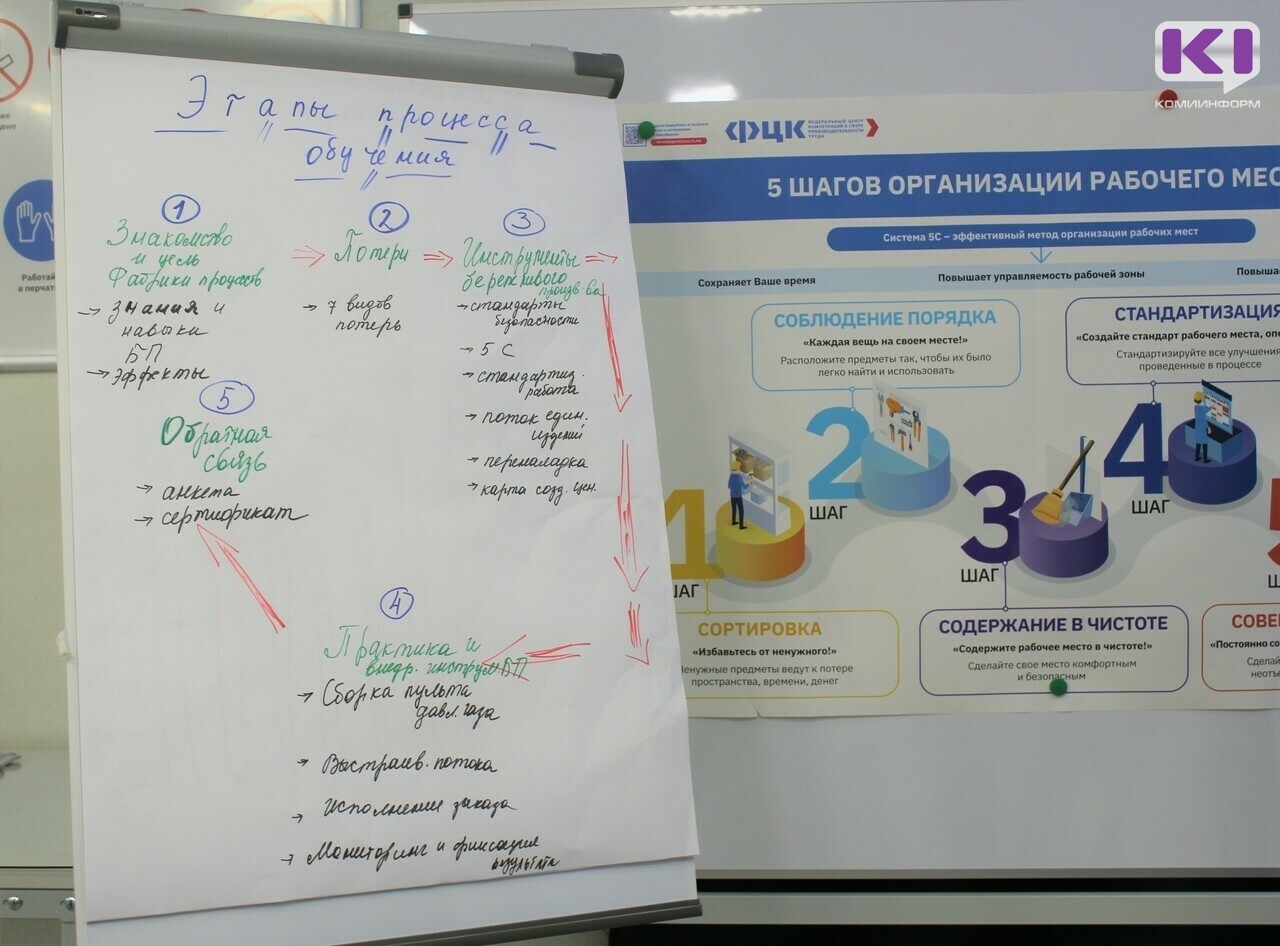 Этапы процесса
обучения
1
Знакомство
и цель
Фабрики процессов
→ знания и
навыки
БП
→ эффекты
2
Потери
→ 7 видов
потерь
3
Инструменты
бережливого
произв-ва
→ стандарты
безопасности
→ 5 С
→ стандартиз.
работа
→ поток един.
изделий
→ переналадка
→ карта созд. цен.
4
Практика и
внедр. инструм БП
→ Сборка пульта
давл. газа
→ Выстраив. потока
→ Исполнение заказа
→ Мониторинг и фиксация
результата
5
Обратная
связь
→ анкета
→ сертификат
Работай
в перчат
ФЦК
ФЕДЕРАЛЬНЫЙ ЦЕНТР
КОМПЕТЕНЦИЙ В СФЕРЕ
ПРОИЗВОДИТЕЛЬНОСТИ
ТРУДА
5 ШАГОВ ОРГАНИЗАЦИИ РАБОЧЕГО МЕС
Система 5С – эффективный метод организации рабочих мест
Сохраняет Ваше время
Повышает управляемость рабочей зоны
Повыша
СОБЛЮДЕНИЕ ПОРЯДКА
«Каждая вещь на своем месте!»
Расположите предметы так, чтобы их было
легко найти и использовать
СТАНДАРТИЗАЦИЯ
«Создайте стандарт рабочего места, опе
Стандартизируйте все улучшения
проведенные в процессе
1
ШАГ
2
ШАГ
3
ШАГ
4
ШАГ
5
СОРТИРОВКА
«Избавьтесь от ненужного!»
Ненужные предметы ведут к потере
пространства, времени, денег
СОДЕРЖАНИЕ В ЧИСТОТЕ
«Содержите рабочее место в чистоте!»
Сделайте свое место комфортным
и безопасным
СОВЕ
«Постоянно со
Сдела
неотъ
KI
КОМИИНФОРМ